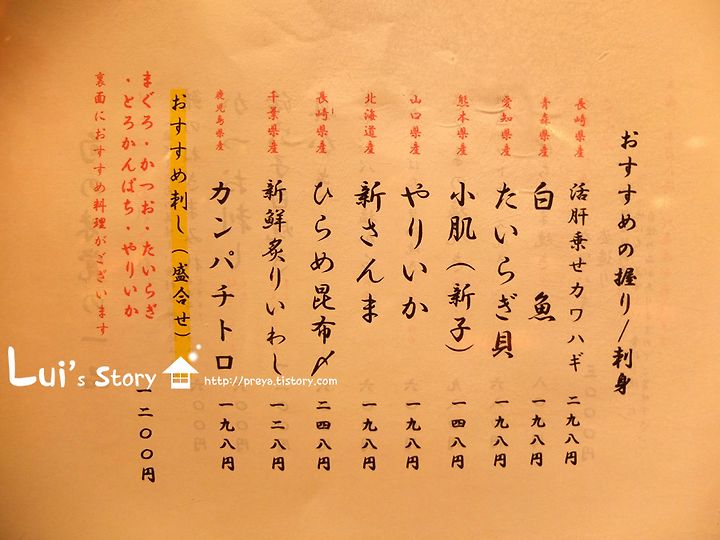 おすすめの握り/刺身
長崎県産 活肝乗せカワハギ 二九八円
青森県産 白魚 一九八円
愛知県産 たいらぎ貝 一九八円
熊本県産 小肌(新子) 一四八円
山口県産 やりいか 一九八円
北海道産 新さんま 一九八円
長崎県産 ひらめ昆布〆 二四八円
千葉県産 新鮮炙りいわし 一二八円
鹿児島県産 カンパチトロ 一九八円
おすすめ刺し(盛合せ) 一二〇〇円
まぐろ・かつお・たいらぎ
・とろかんぱち・やりいか
裏面におすすめ料理がございます
Lui's Story
http://preya.tistory.com